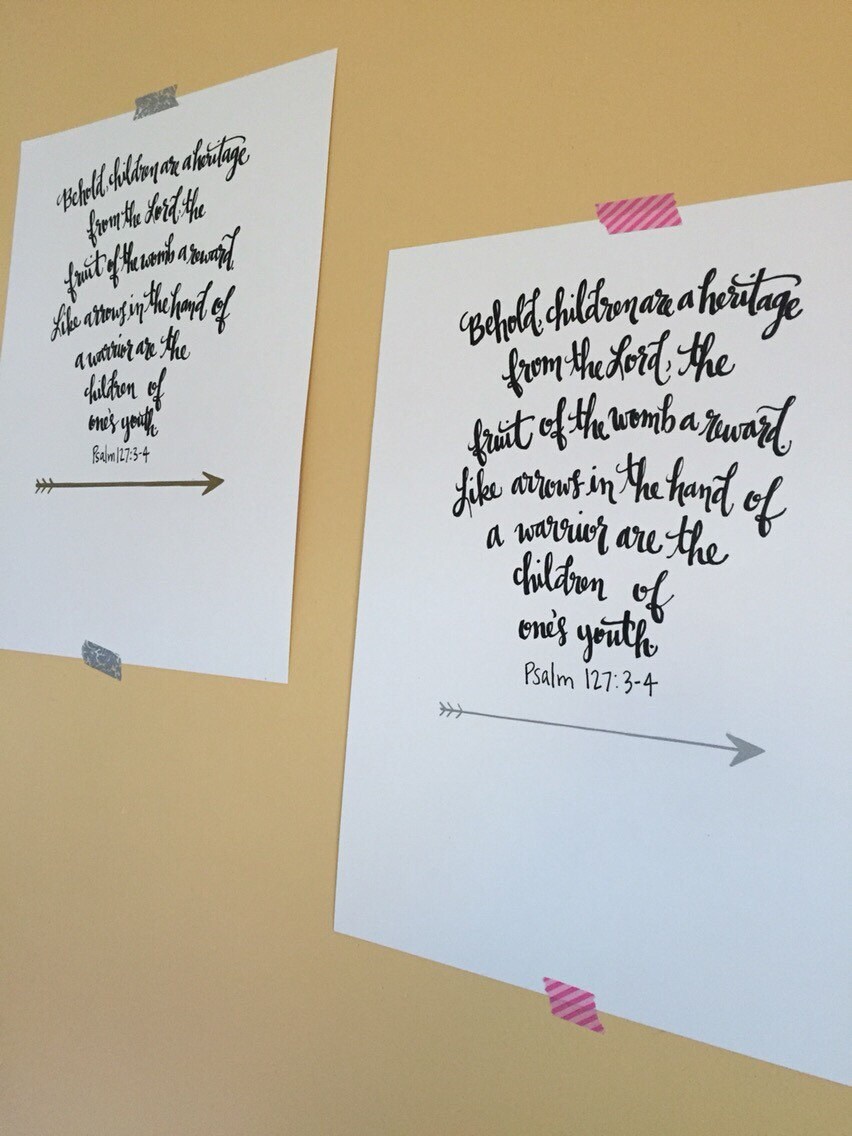 Behold, children are a heritage
from the Lord, the
fruit of the womb a reward.
Like arrows in the hand of
a warrior are the
children of
one's youth.
Psalm 127:3-4
Behold, children are a heritage
from the Lord, the
fruit of the womb a reward.
Like arrows in the hand of
a warrior are the
children of
one's youth.
Psalm 127:3-4